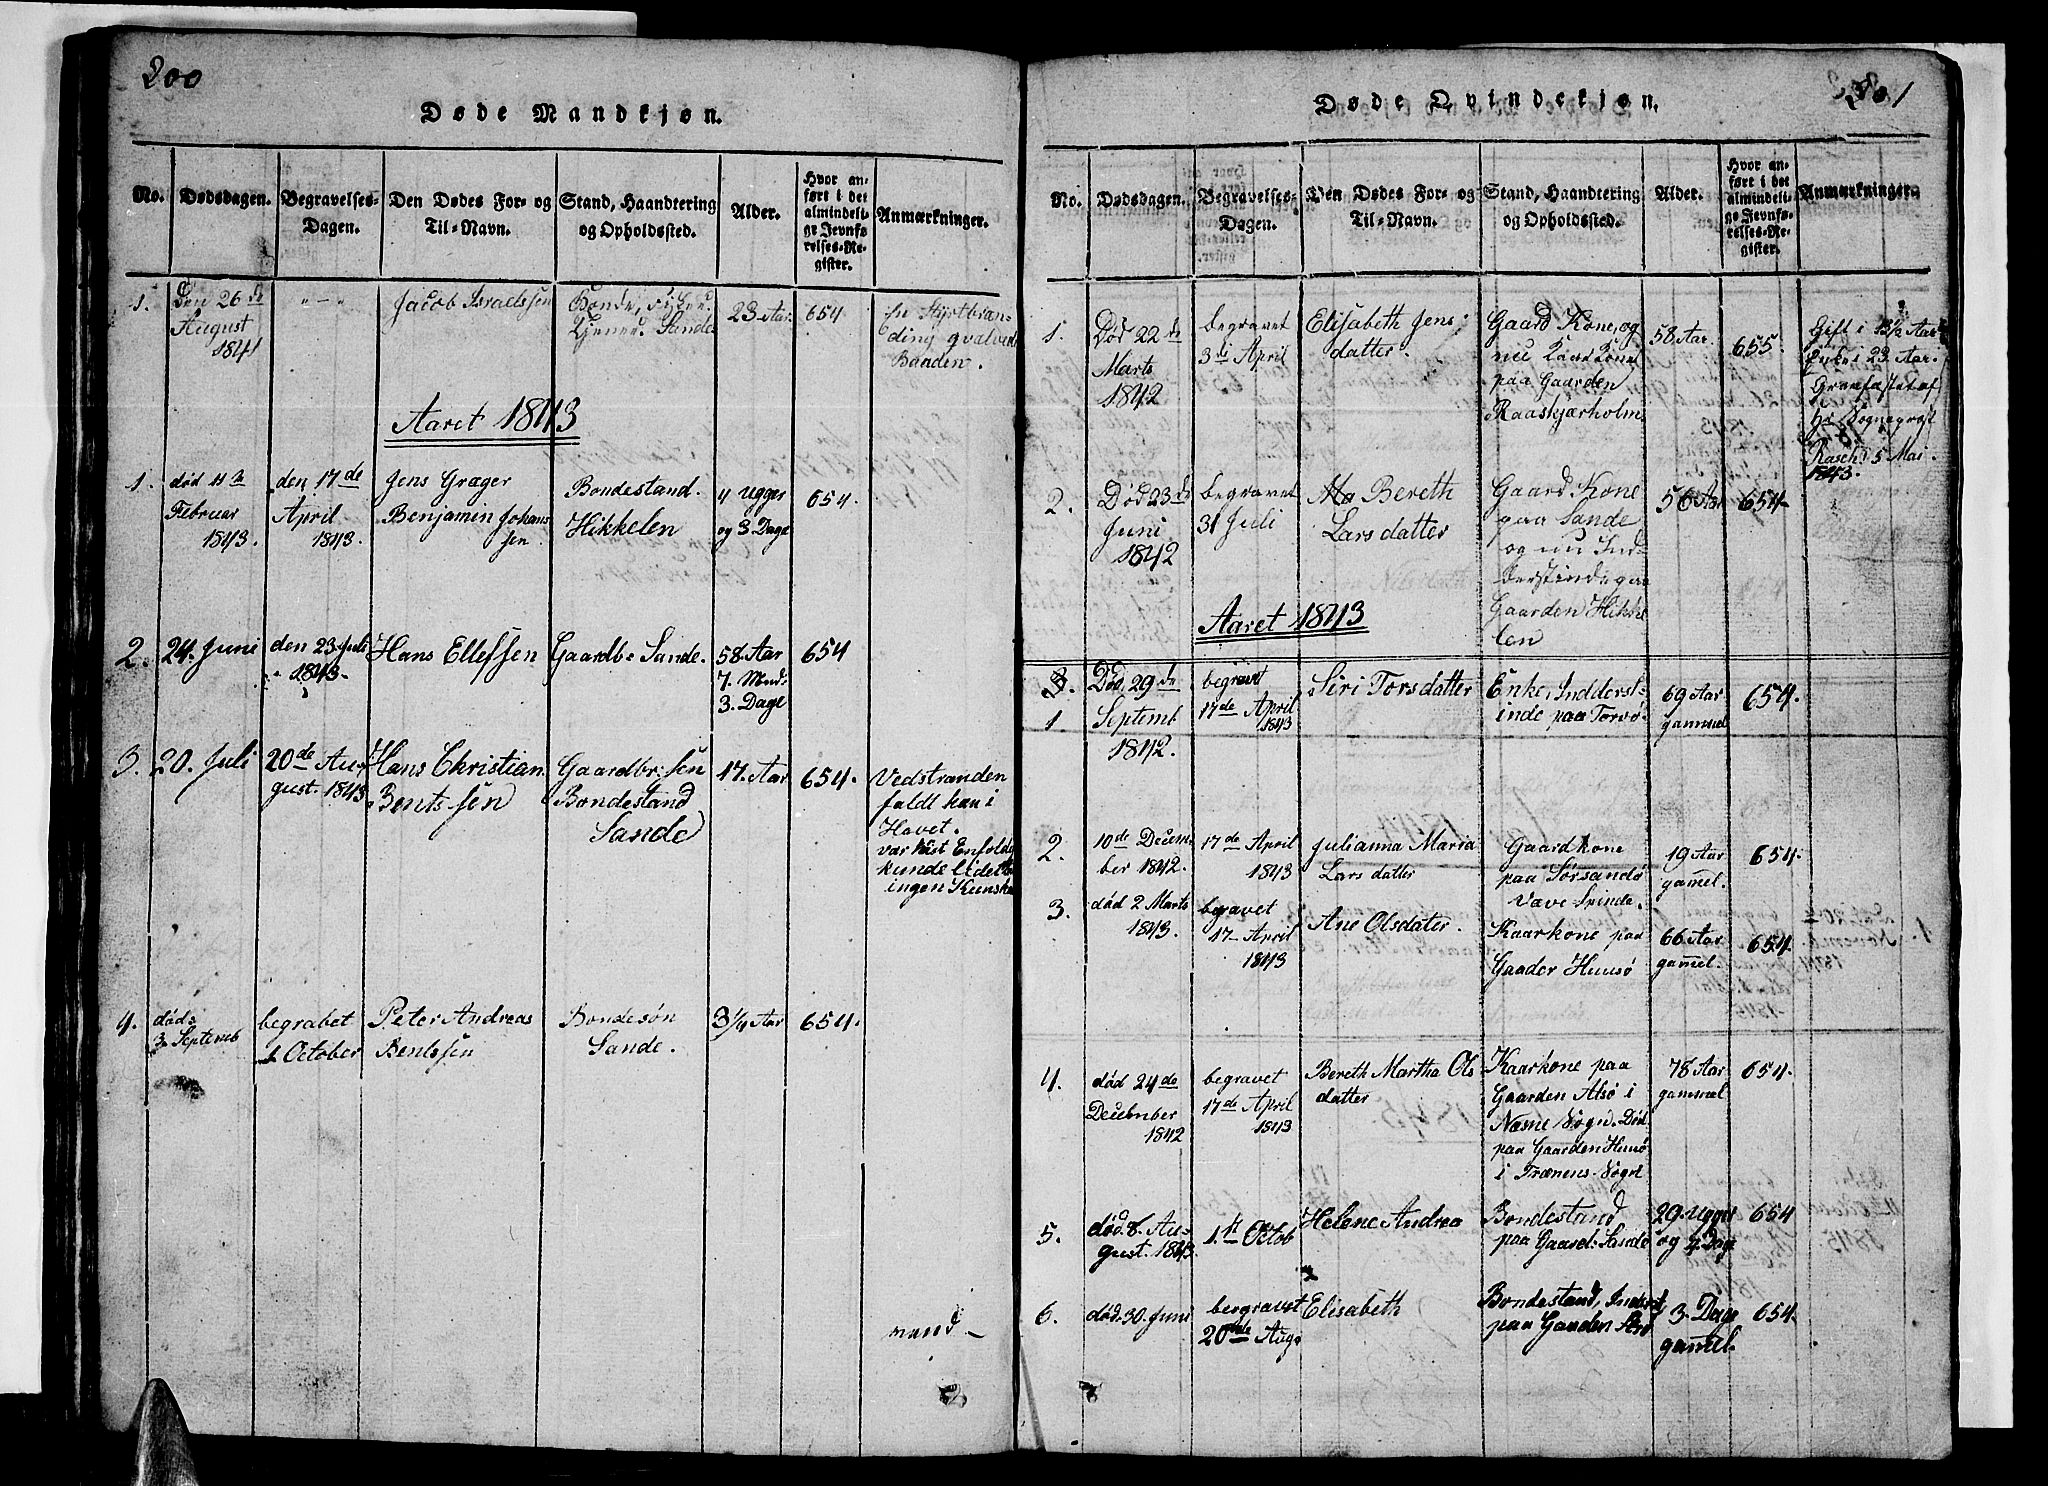 200
Døde Mandkjøn.
No.
Dødsdagen.
Begravelses-
Dagen.
Den Dødes For- og
Til-Navn.
Stand, Haandtering
og Opholdssted.
Alder.
Hvor an-
ført i det
almindeli-
ge Jevnfø-
relses-Re-
gister.
Anmærkninger.
1.
Den 26 de
August
1841
" - "
Jacob Israelssen
Bonde,
Tjener. Sande
23 Aar.
654
en Styrtbræn-
ding qvalvede
Baaden.
Aaret 1843
1.
død 4 de
Februar
1843.
den 17 de
April
1843.
Jens Græger
Benjamin Johans
sen.
Bondestand.
Hikkelen
4 Ugger
og 3 Dage
654
2.
24. Juni
den 23 Juli
1843.
Hans Ellefsen
Gaardb: Sande.
58 Aar
7. Mnd:
3. Dage
654
3.
20. Juli
20 de Au-
gust. 1843
Hans Christian
Bentssen
Gaardbr: sen
Bondestand
Sande
17. Aar
654.
Vedstranden
faldt han i
Havet.
var kust Enfoldi
kunde lidet
ingen Kunska
4.
død:
3. Septemb
begrabet
1 October
Peter Andreas
Bentssen
Bondesøn
Sande.
3 1/4 Aar
654.
201
Døde Qvindekjøn.
No.
Dødsdagen.
Begravelses-
Dagen.
Den Dødes For- og
Til-Navn.
Stand, Haandtering
og Opholdssted.
Alder.
Hvor an-
ført i det
almindeli-
ge Jevnfø-
relses-Re-
gister.
Anmærkninger.
1.
Død 22 de
Marts
1842
begravet
3 di April
Elisabeth Jens
datter.
Gaard Kone, og
nu Kaarkone
paa Gaarden
Raaskjærholm
58 Aar.
655.
Gift i 13 1/2 Aar
Enke i 23 Aar.
Gravfæstet af
Hr Sognepræst
Rasch d 5 Mai
1843.
2.
Død 23 de
Juni
1842
begravet
31 Juli
Ma Bereth
Lars datter
Gaard Kone
paa Sande
og nu Ind-
derstinde paa
Gaarden Hikke
len
56 Aar
654.
Aaret 1843
1
Død 29 de
Septemb
1842.
begravt
17 de April
1843
Siri Torsdatter
Enke, Indderst-
inde paa Torvø.
69 Aar
gammel
654.
2.
10 de Decem-
ber 1842.
17 de April
1843
Julianna Maria
Lars datter
Gaardkone
paa Sørsandø
Væve Spinde.
19 Aar
gam̅el.
654.
3.
død 2 Marts
1843.
begravet
17 April
1843
Ane Olsdater.
Kaarkone paa
Gaader Husø
66 Aar
gam̅el.
654.
4.
død 24 de
December
1842
begravet
17 de April
1843
Bereth Martha Ols
datter
Kaarkone paa
Gaarden Alsø i
Næsne Sogn. Død
paa Gaarden Husø
i Trænens Sogn
78 Aar
gammel
654.
5.
død. 8. Au-
gust. 1843.
1. st Octob
Helene Andrea
Bondestand
paa Gaard: Sande
29. Ugger
og 4 Dage
654
6.
død. 30. Juni
bergravet
20 de Aug.
Elisabeth
Bondestand, Inderst
paa Gaarden
3. Dage
gam̅el.
654.